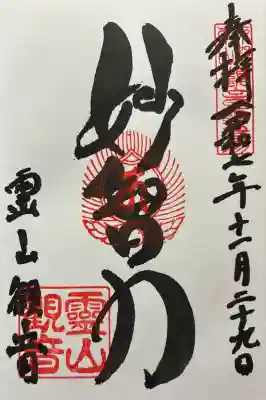 奉拝 令和七年十一月二十九日
妙智力
霊山観音
霊山
観音